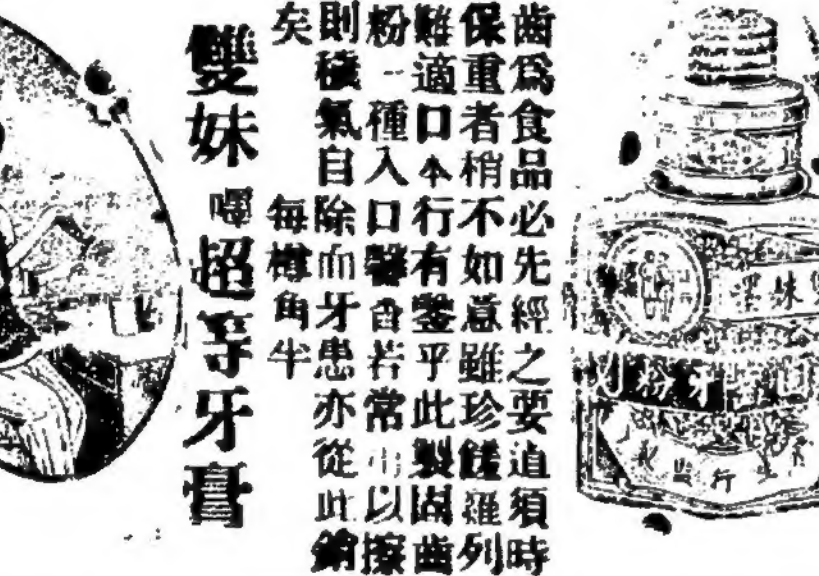 齒爲食品必先經之要道須時
保重者稍不如意雖珍饈羅列
難適口本行有鑒乎此製固齒
粉一種入口馨香若常用以擦
則穢氣自除而牙患亦從此銷
矣 每樽角半
雙妹嚜超等牙膏